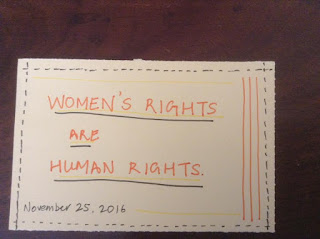 WOMEN'S RIGHTS
ARE
HUMAN RIGHTS.
November 25, 2016